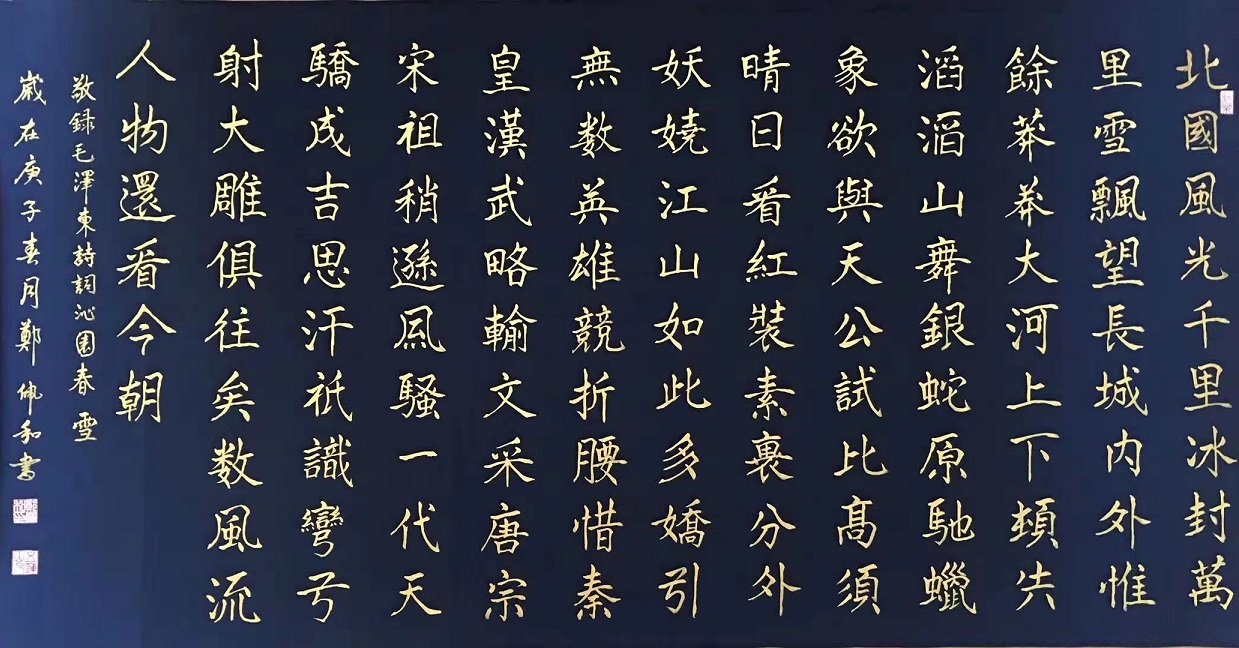 北國風光千里冰封萬
里雪飄望長城内外惟
餘莽莽大河上下頓失
滔滔山舞銀蛇原馳蠟
象欲與天公試比高須
晴日看紅裝素裹分外
妖嬈江山如此多嬌引
無数英雄競折腰惜秦
皇漢武略輸文采唐宗
宋祖稍遜風騷一代天
驕成吉思汗祇識彎弓
射大雕俱往矣数風流
人物還看今朝
敬録毛澤東詩詞沁園春雪
歲在庚子春月鄭佩和書